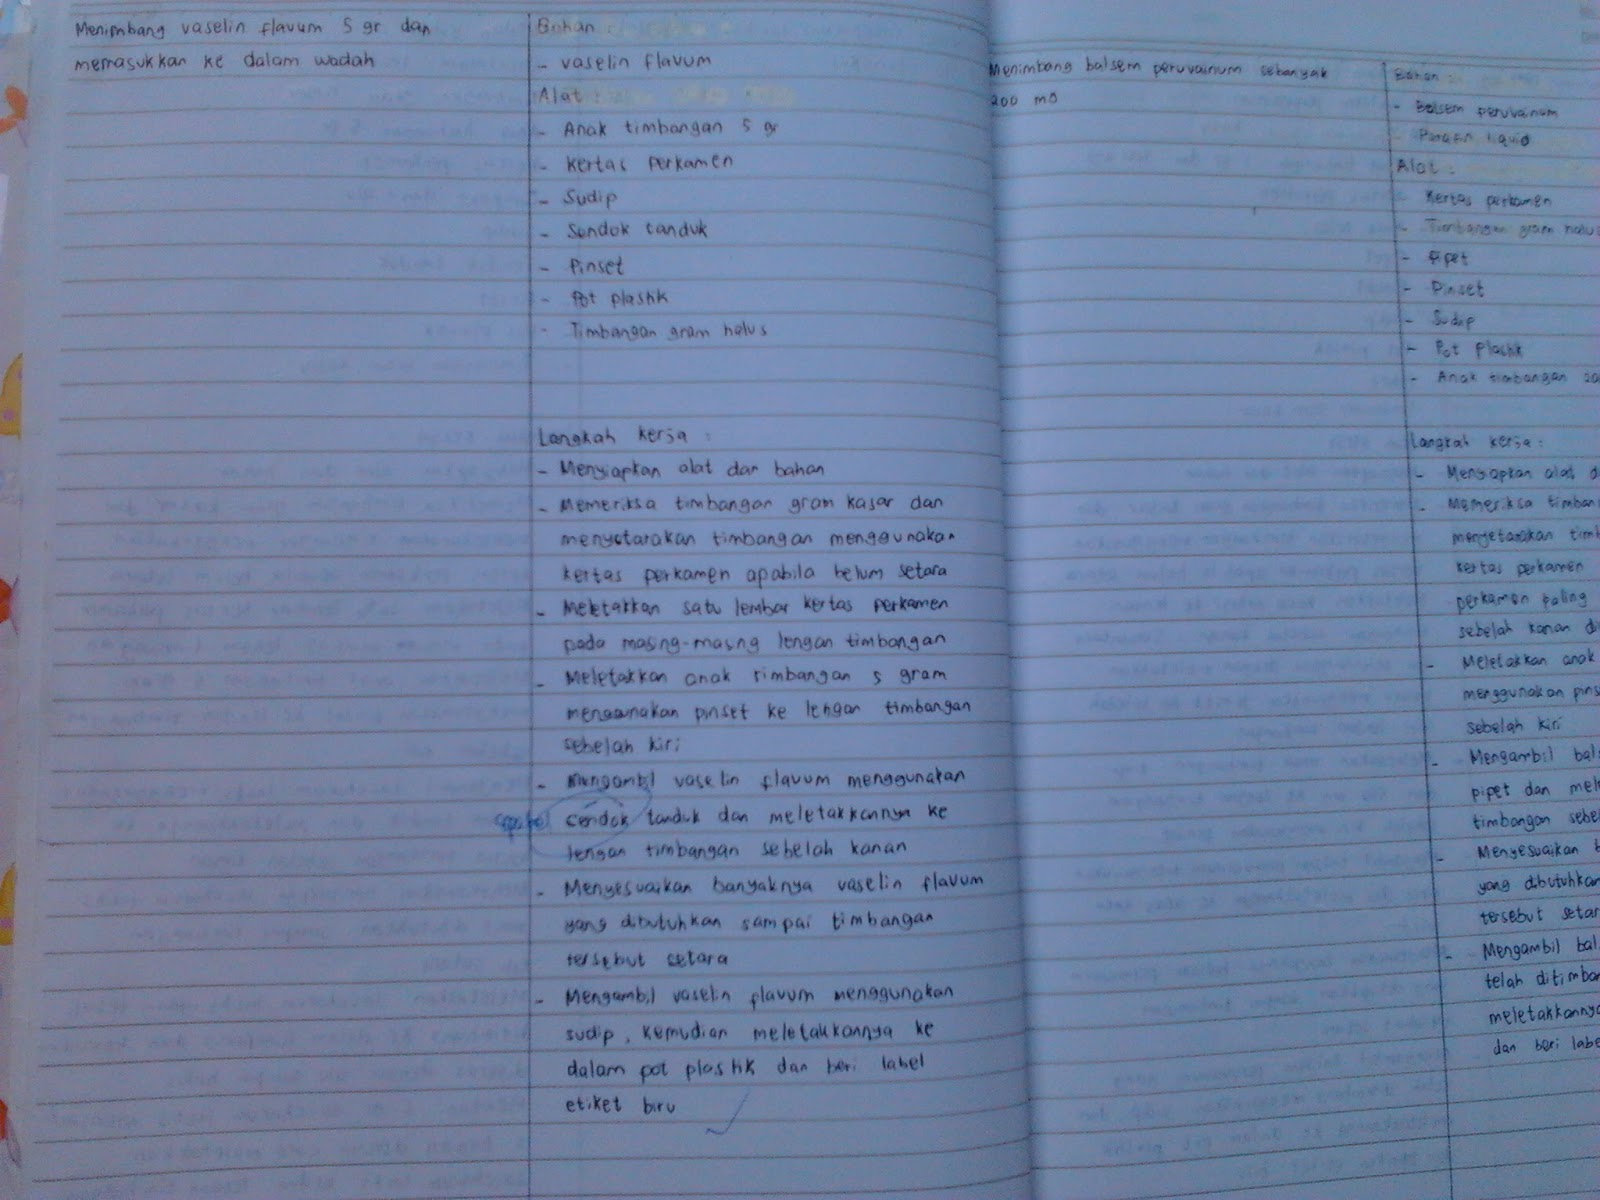 Menimbang vaselin flavum 5 gr dan
memasukkan ke dalam wadah
Bahan :
- vaselin flavum
Alat :
- Anak timbangan 5 gr
- Kertas perkamen
- Sudip
- Sendok tanduk
- Pinset
- Pot plastik
- Timbangan gram halus
Langkah kerja :
- Menyiapkan alat dan bahan
- Memeriksa timbangan gram kasar dan
menyetarakan timbangan menggunakan
kertas perkamen apabila belum setara
- Meletakkan satu lembar kertas perkamen
pada masing-masing lengan timbangan
- Meletakkan anak timbangan 5 gram
menggunakan pinset ke lengan timbangan
sebelah kiri
- Mengambil vaselin flavum menggunakan
sendok tanduk dan meletakkannya ke
lengan timbangan sebelah kanan
- Menyesuaikan banyaknya vaselin flavum
yang dibutuhkan sampai timbangan
tersebut setara
- Mengambil vaselin flavum menggunakan
sudip, kemudian meletakkannya ke
dalam pot plastik dan beri label
etiket biru
Menimbang balsem peruvainum sebanyak
200 mg
Bahan :
- Balsem peruvainum
- Parafin liquid
Alat :
- Kertas perkamen
- Timbangan gram halus
- Pipet
- Pinset
- Sudip
- Pot plastik
- Anak timbangan 20
Langkah kerja :
- Menyiapkan alat d
- Memeriksa timban
menyetarakan timb
kertas perkamen
perkamen paling
sebelah kanan di
- Meletakkan anak
menggunakan pins
sebelah kiri
- Mengambil bal
pipet dan mele
timbangan sebel
- Menyesuaikan b
yang dibutuhkan
tersebut setar
- Mengambil bal
telah ditimban
meletakkannya
dan beri labe